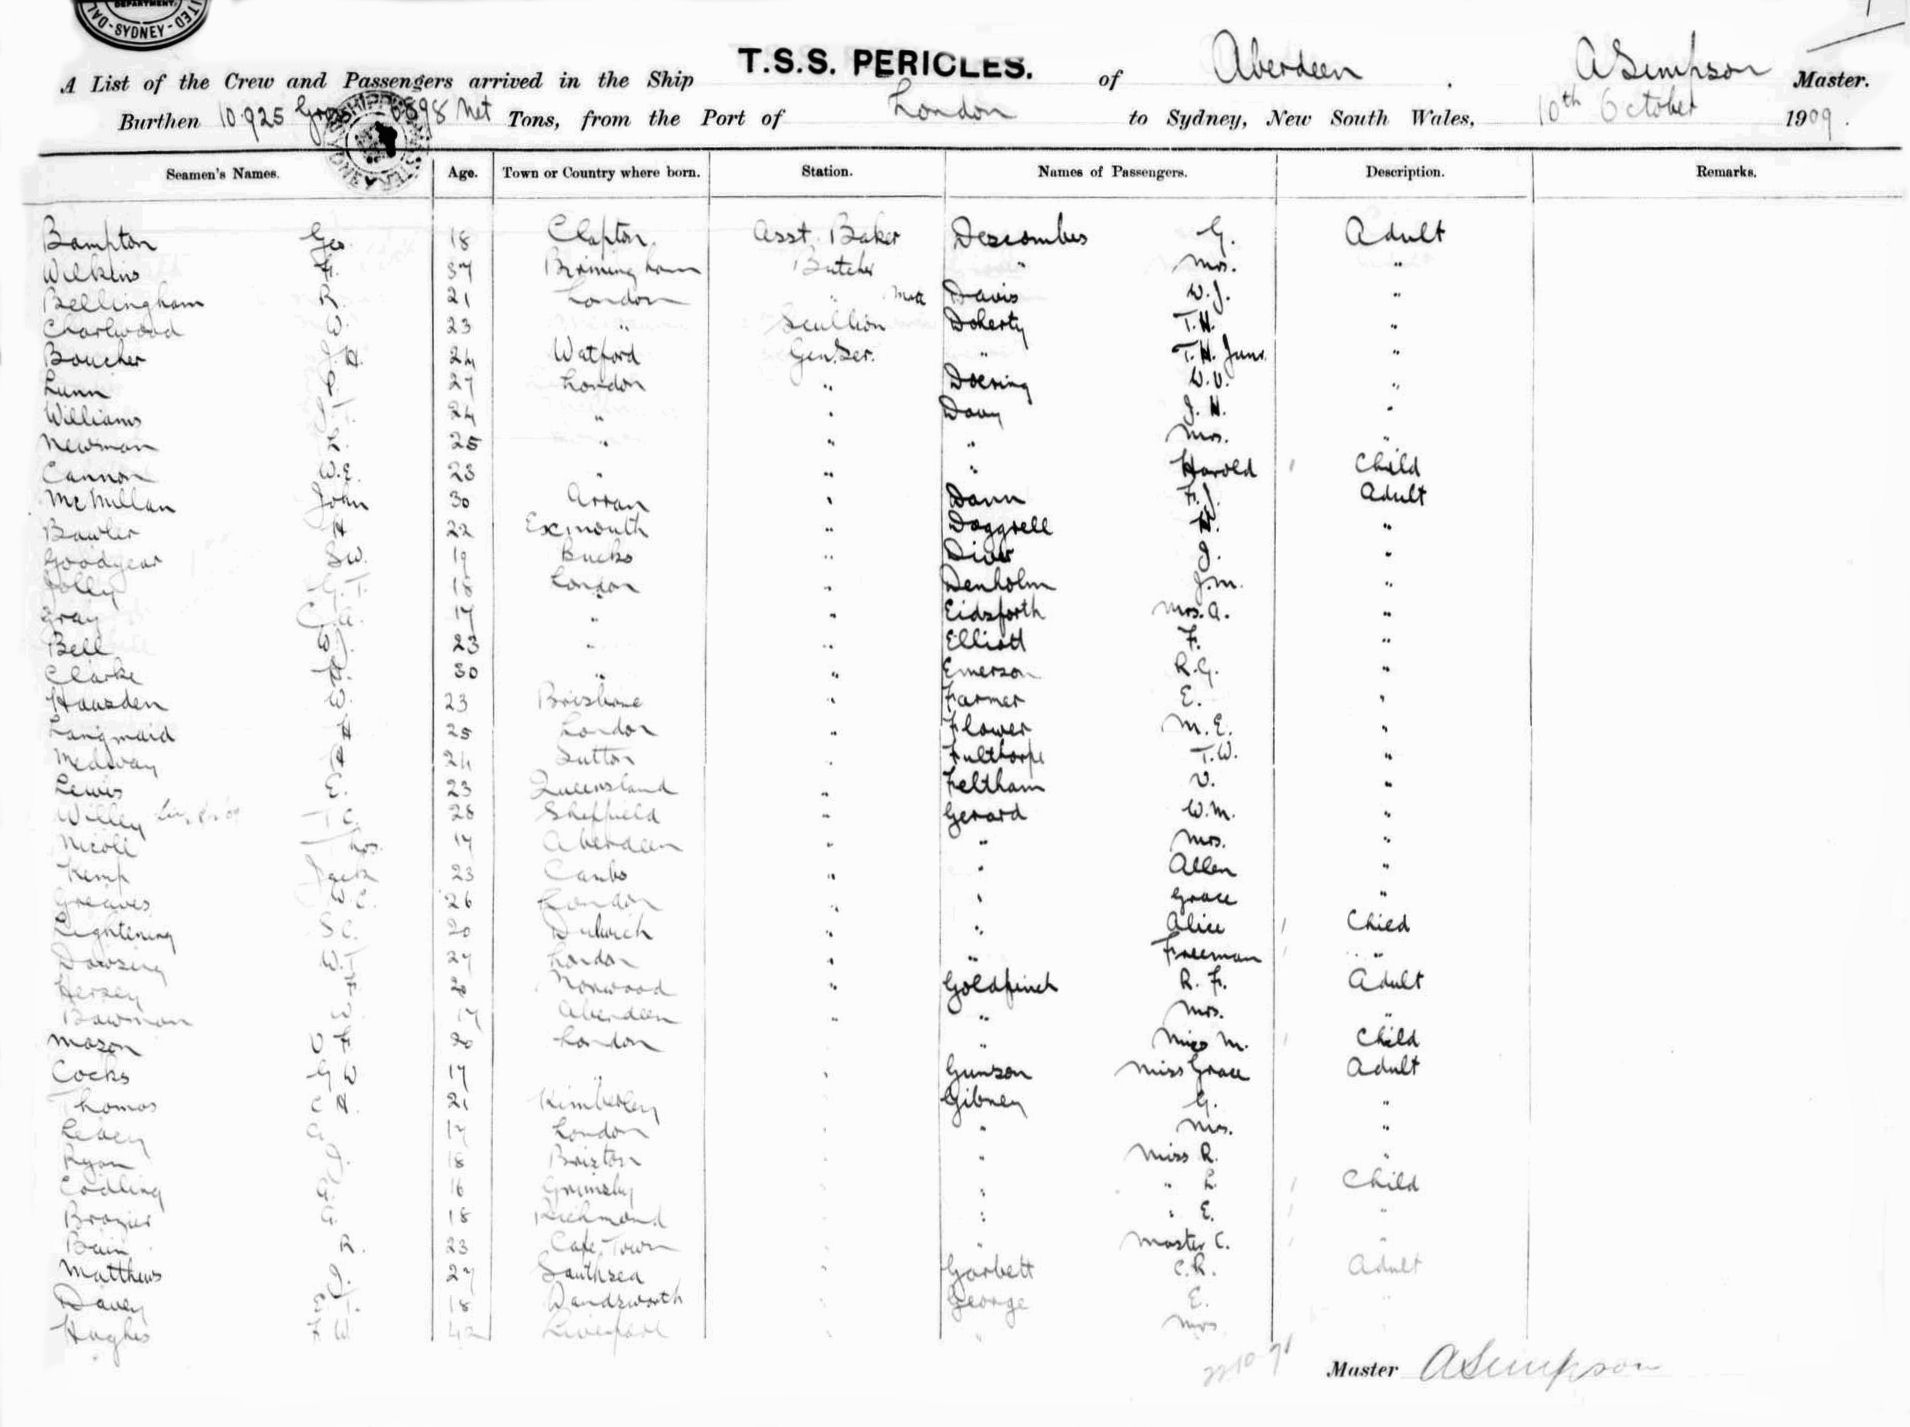 DEPARTMENT.
SYDNEY
T.S.S. PERICLES.
A List of the Crew and Passengers arrived in the Ship of Aberdeen. A Simpson Master.
Burthen 10.925 Gross 6898 Net Tons, from the Port of London to Sydney, New South Wales, 10th October 1909.
Seamen's Names. Age. Town or Country where born. Station. Names of Passengers. Description. Remarks.
Bampton Geo. 18 Clapton. Asst. Baker Descombes G. Adult
Wilkins F. 37 Birmingham Butcher " Mrs. "
Bellingham R. 21 London " Mate Davis W.J. "
Charlwood W. 23 " Scullion Doherty T.H. "
Boucher J H. 24 Watford Gen. Ser. " T.H. Junr. "
Lunn 27 London " Doering W.V. "
Williams 24 " " Davy J.H. "
Newman L. 25 " " " Mrs. "
Cannon W.E. 23 " " " Harold 1 Child
McMillan John 30 Arran " Dann F.J. Adult
Bowler H 22 Exmouth " Doggrell H. "
Goodgear S W. 19 Bucks " Diver J. "
Jolly G.T. 18 London " Denholm J.M. "
Gray C.A. 17 " " Eidsforth Mrs. A. "
Bell W J. 23 " " Elliott F. "
Clarke 30 " " Emerson R.G. "
Haasden W. 23 Brisbane " Farmer E. "
Langmaid H 25 London " Flower M.E. "
Medway H 24 Sutton " Fulthorpe T.W. "
Lewis E. 23 Queensland " Feltham V. "
Willey T C. 28 Sheffield " Gerard W.M. "
Nicoll Thos. 17 Aberdeen " " Mrs. "
Kemp Jack 23 Cambs " " Allen "
Greaves W.C. 26 London " " Grace "
Lightening S C. 20 Dulwich " " Alice 1 Child
Dowsing W.T 27 London " " Freeman 1 "
Hersey F 20 Norwood " Goldfinch R.F. Adult
Bowman W. 17 Aberdeen " " Mrs. "
Mason V F 20 London " Miss M. 1 Child
Cocks G W 17 " " Gunson Miss Grace Adult
Thomas C H. 21 Kimberley Gibney G. "
Levey 17 London " Mrs. "
Ryan J. 18 Brixton " Miss R. "
Codling G. 16 Grimsby " " L. 1 Child
Brazier G. 18 Richmond " " E. 1 "
Bain R. 23 Cape Town " Master C. 1 "
Matthews J. 27 Southsea " Garbett C.R. Adult
Davey E T. 18 Wandsworth George E. "
Hughes F W. 42 Liverpool " Mrs
Master A Simpson